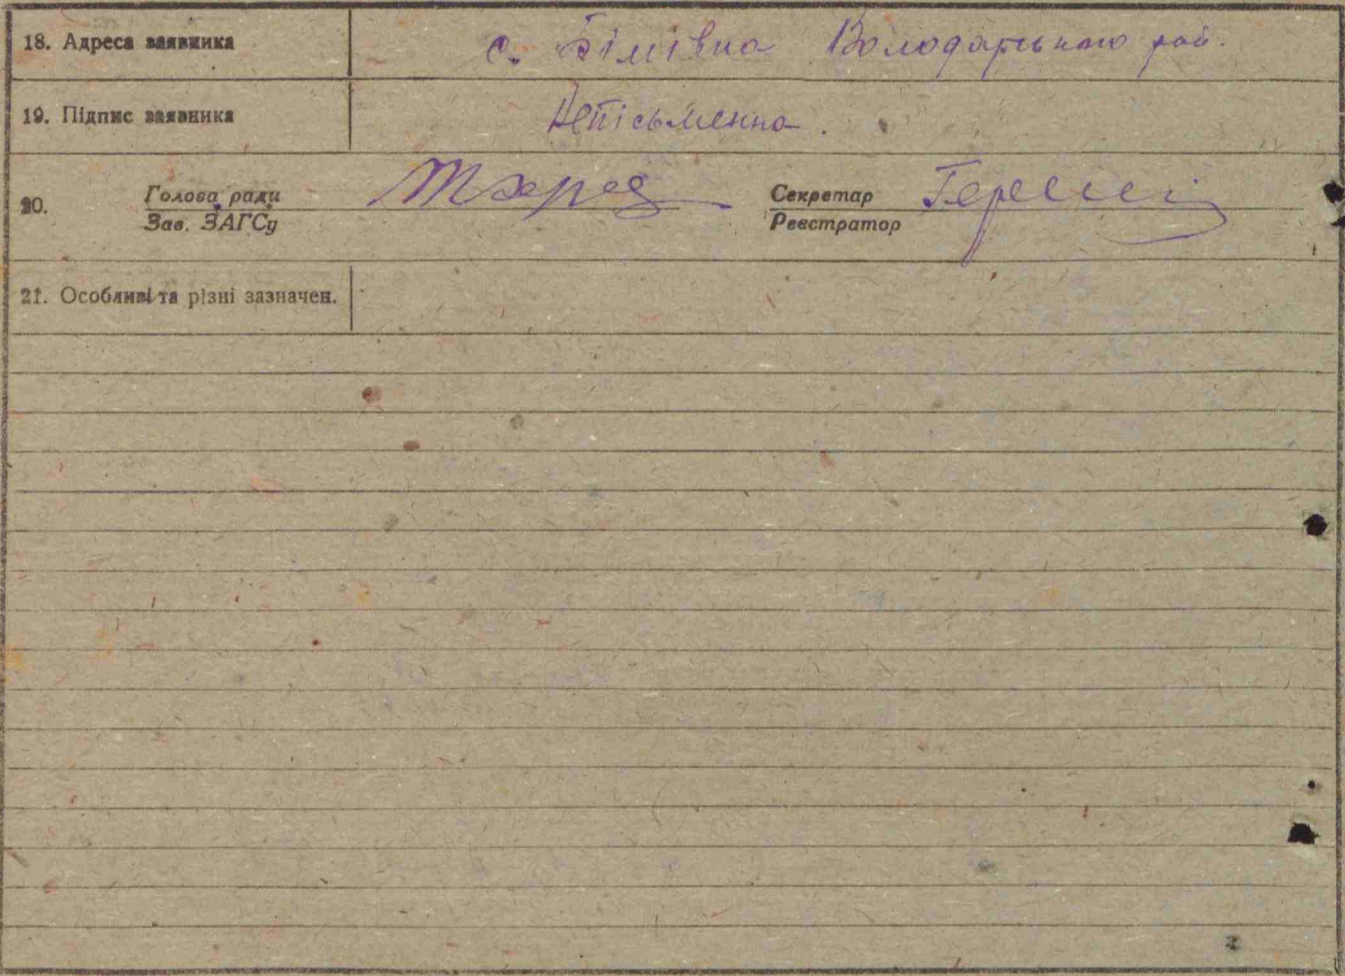 18. Адреса заявника с. Білівна Володарського рай.
19. Підпис заявника Непісьменна.
20. Голова ради Секретар
Зав. ЗАГСу Реєстратор
21. Особливі та різні зазначен.